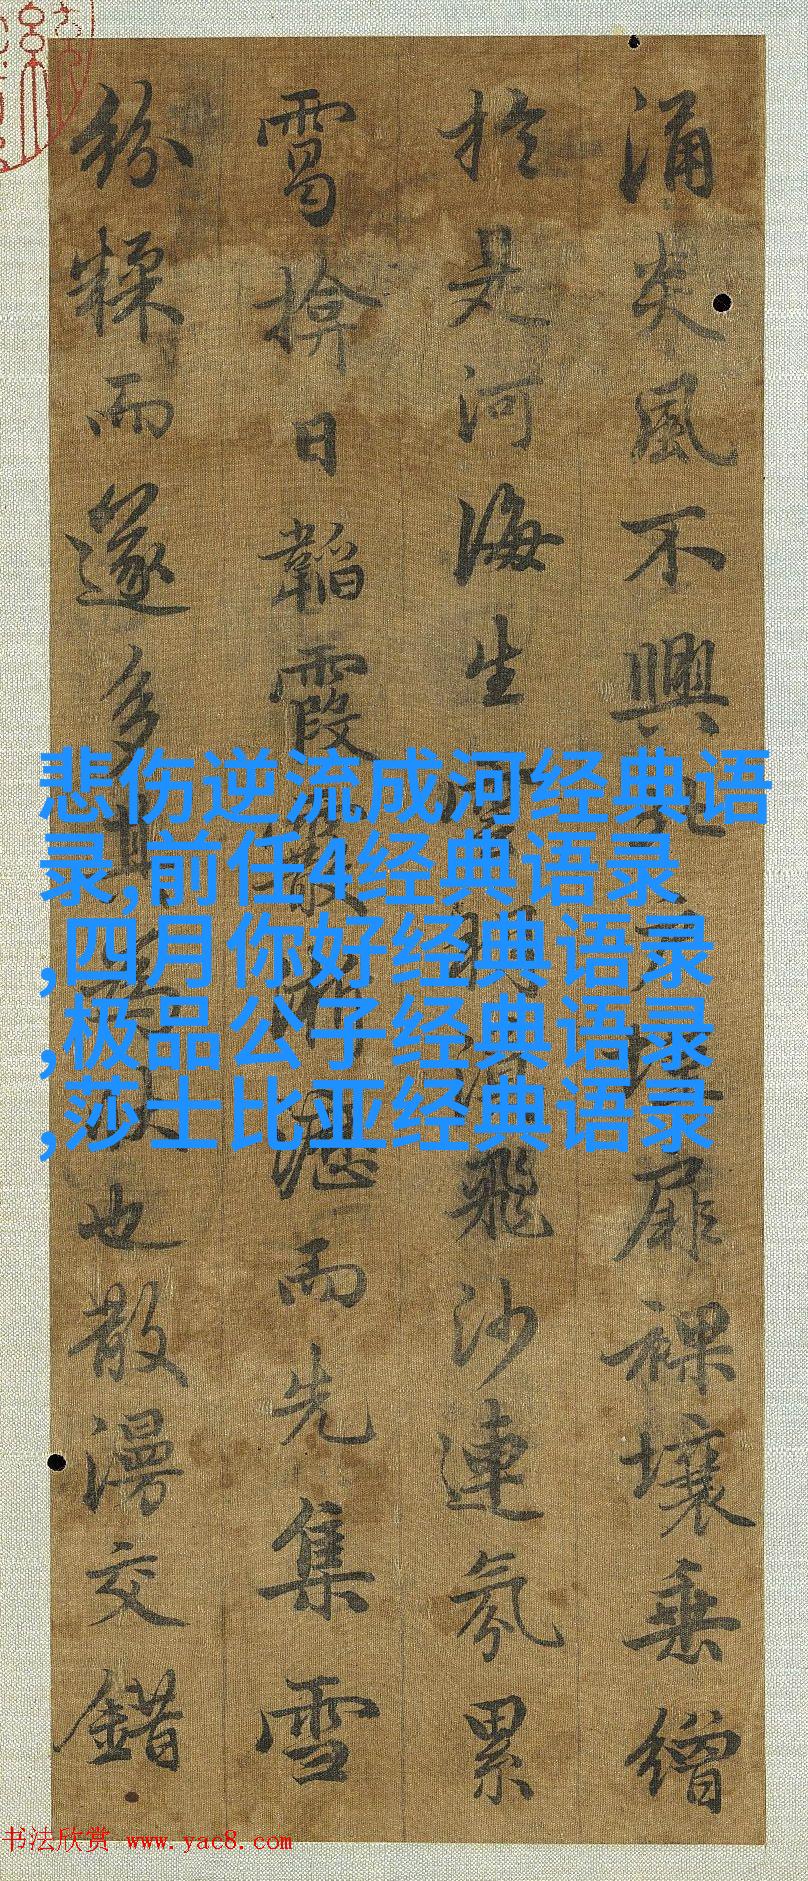 涌炎風不興北戶墐扉裸壤垂繒
於是河海生雲朔漠飛沙連氛累
靄揜日韜霞霰淅瀝而先集雪
紛糅而遂多其為狀也散漫交錯
悲伤逆流成河经典语
录,前任4经典语录
,四月你好经典语录
,极品公子经典语录
,莎士比亚经典语录
书法欣赏 www.yac8.com